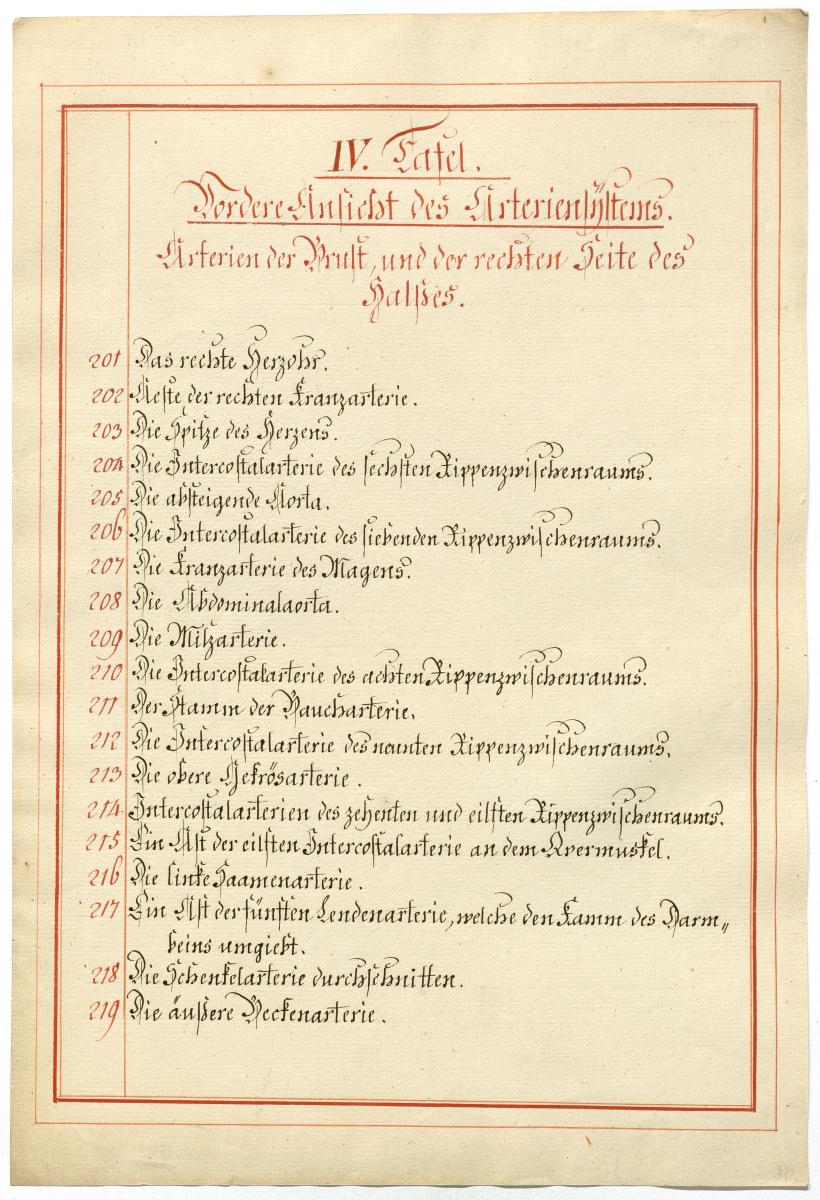 IV. Tafel.
Vordere Ansicht des Arteriensÿstems.
Arterien der Brust, und der rechten Seite des
Halßes.
201 Das rechte Herzohr.
202 Aeste der rechten Kranzarterie.
203 Die Spitze des Herzens.
204 Die Intercostalarterie des sechsten Rippenzwischenraums.
205 Die absteigende Aorta.
206 Die Intercostalarterie des siebenden Rippenzwischenraums.
207 Die Kranzarterie des Magens.
208 Die Abdominalaorta.
209 Die Milzarterie.
210 Die Intercostalarterie des achten Rippenzwischenraums.
211 Der Stamm der Baucharterie.
212 Die Intercostalarterie des neunten Rippenzwischenraums.
213 Die obere Gekrösarterie.
214 Intercostalarterien des zehenten und eilften Rippenzwischenraums.
215 Ein Ast der eilften Intercostalarterie an dem Qvermuskel.
216 Die linke Saamenarterie.
217 Ein Ast der fünften Lendenarterie, welche den Kamm des Darm„
beins umgiebt.
218 Die Schenkelarterie durchschnitten.
219 Die äußere Beckenarterie.